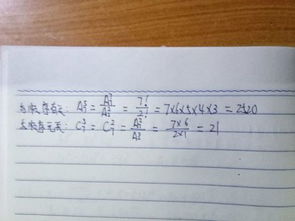 与顺序有关: A₇⁵ = A₇⁷/A₂² = 7!/2! = 7×6×5×4×3 = 2520
与顺序无关: C₇⁵ = C₇² = A₇²/A₂² = 7×6/2×1 = 21